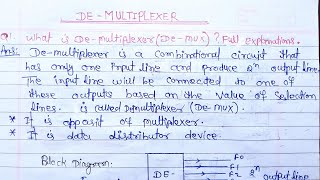 DE-MULTIPLEXER
Q! What is De-multiplexer (De-mux)? Full explanations.
Ans: De-multiplexer is a combinational circuit that
has only one Input line and produce 2ⁿ output line.
The input line will be connected to one of
these outputs based on the value of selection
lines. is called Demultiplexer (De-mux).
* It is opposit of multiplexer.
* It is data distributor device.
Block Diagram. F0
F1 2ⁿ output line
DE-